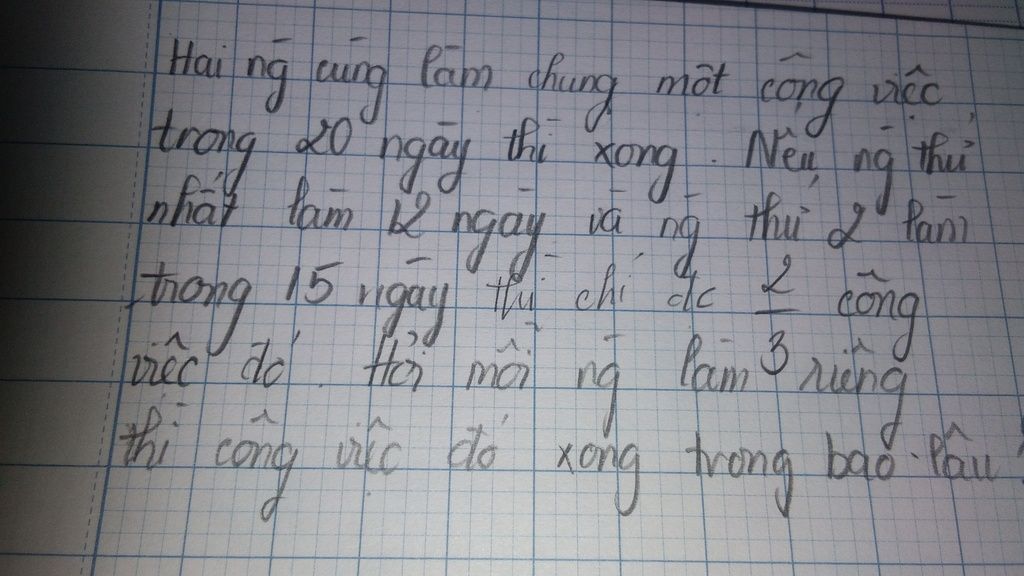 Hai ng̀ cùng làm chung một công việc
trong 20 ngày thì xong. Nếu ng̀ thứ
nhất làm 12 ngày và ng̀ thứ 2 làm
trong 15 ngày thì chỉ đc 2/3 công
việc đó. Hỏi mỗi ng̀ làm riêng
thì công việc đó xong trong bao lâu